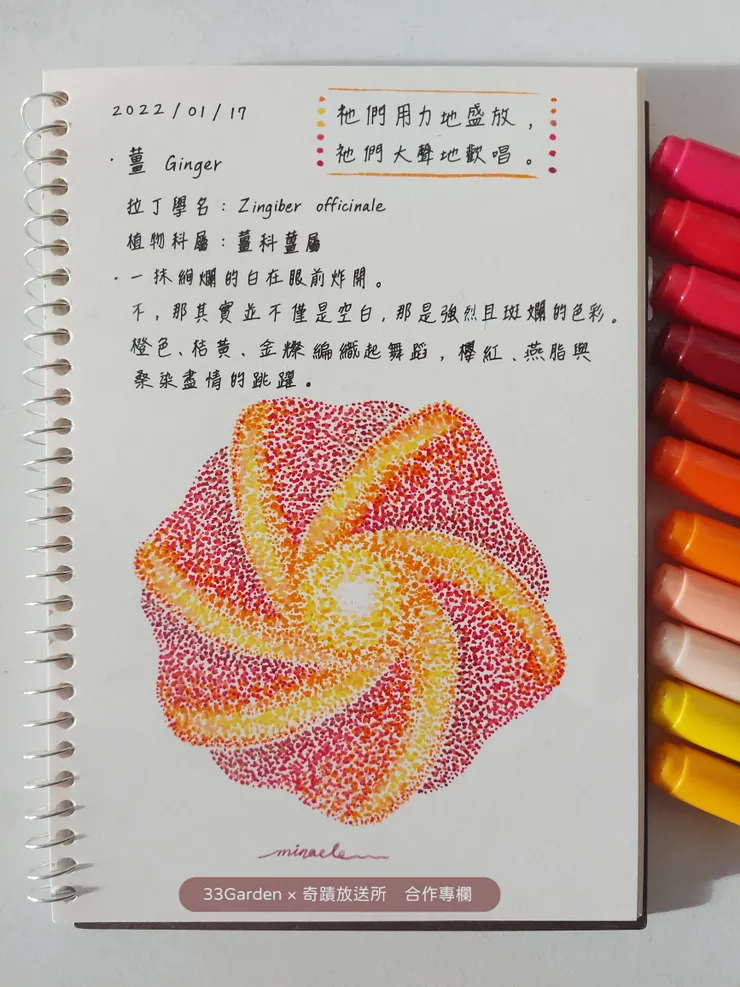 2022/01/17
祂們用力地盛放，
祂們大聲地歡唱。
·薑 Ginger
拉丁學名：Zingiber officinale
植物科屬：薑科薑屬
·一抹絢爛的白在眼前炸開。
不，那其實並不僅是空白，那是強烈且斑斕的色彩。
橙色、桔黄、金燦編織起舞蹈，櫻紅、燕脂與
桑染盡情的跳躍。
miracle
33Garden × 奇蹟放送所 合作專欄